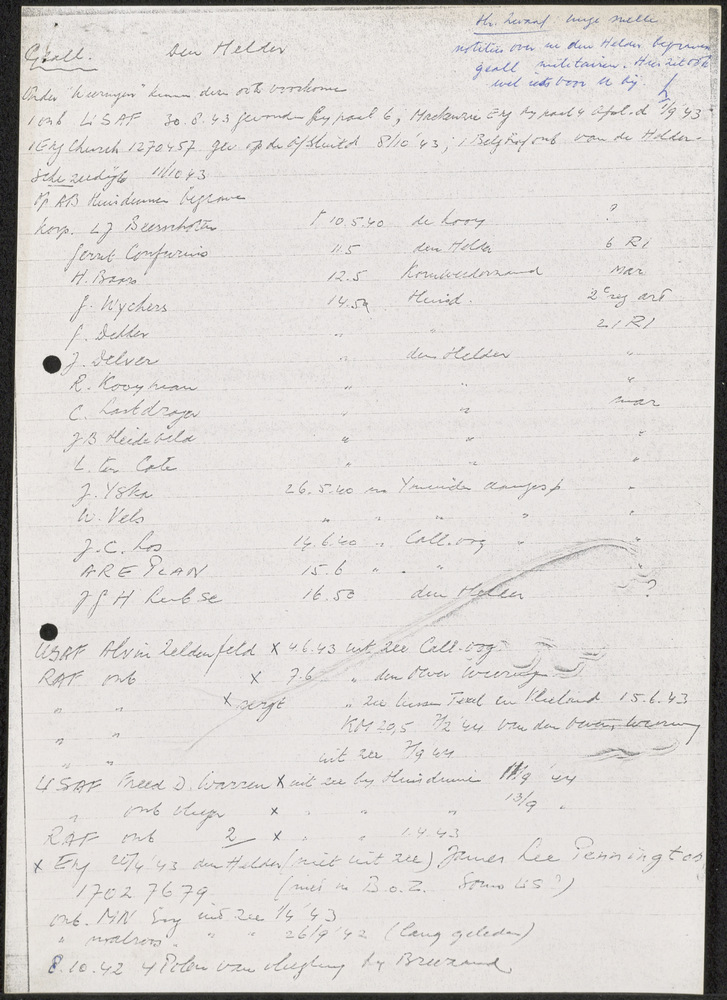 Geall. Den Helder
Hr. Zwaaf enige snelle
notities over in den Helder begraven
geall. militairen. Hier zit ook
wel iets voor u bij.
Onder "Wieringen" kunnen dezen ook voorkomen
1 onb USAF 30.8.43 gevonden bij paal 6; Mackenzie Eng bij paal 4 Afsl.d 1/9 43
1 Eng Church 1270457 gev op de Afsluitd 8/10 43; 1 Belg Raf onb van de Helder-
sche zeedijk 11/10 43
Op AB Huisduinen begraven
Korp. LJ Beerschoten 10.5.40 de Kooy ?
Gerrit Confurius 11.5 den Helder 6 RI
H. Baars 12.5 Kornwerderzand mar
J. Wychers 14.5 Huisd. 2e reg art
J. Dekker " " 21 RI
J. Delver " den Helder "
R. Kooyman " " "
C. Lastdrager " " mar
J.B Heideveld " " "
L. ten Cate " " "
J. Yska 26.5.40 Ymuiden aangesp "
W. Vels " " " " "
J.C. Los 14.6.40 " Call.oog " "
ARE PLAN 15.6 " "
J G H 16.5 den Helder ?
USAF Alvin Zeldenfeld X 4.6.43 uit zee Call-oog
RAF onb X 7.6 " den Oever Wieringen
" " X sergt " zee tussen Texel en Vlieland 15.6.43
" " KM 20,5 7/2 '44 van den Oever, Wieringen
" " uit zee 7/9 44
USAF Freed D. Warren X uit zee bij Huisduinen 11/9 '44
" onb vlieger X " " " 13/9 "
RAF onb 2 X " " 1.4.43
X Eng 20/4 '43 den Helder (niet uit zee) James Lee Pennington
17027679 (niet in B.o.Z. Soms US?)
onb. MN Eng uit zee 1/4 '43
" matroos " " 26/9 '42 (lang geleden)
8.10.42 4 Polen van vliegtuig bij Breezand